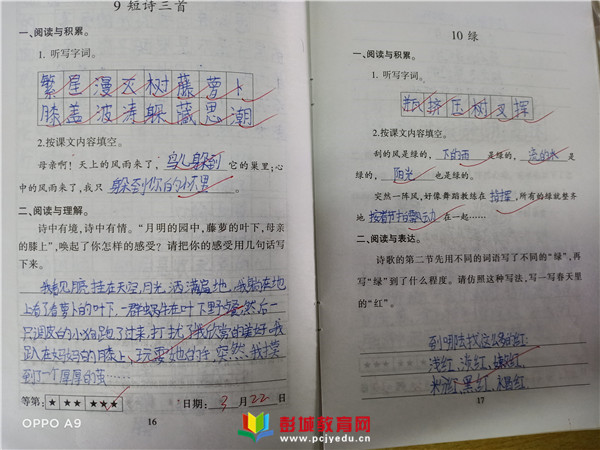 9 短诗三首
一、阅读与积累。
1. 听写字词。
繁星漫灭树藤萝卜
膝盖波涛躲藏思潮
2.按课文内容填空。
母亲啊！天上的风雨来了，鸟儿躲到它的巢里；心
中的风雨来了，我只躲到你的怀里。
二、阅读与理解。
诗中有境，诗中有情。“月明的园中，藤萝的叶下，母亲
的膝上”，唤起了你怎样的感受？请把你的感受用几句话写
下来。
挂在天空，月光洒满
上看了看萝卜的叶下，一群蚂蚁在叶下野餐，然后一
只调皮的小狗跑了过来，打扰了我欣赏的美好。我
趴在妈妈的膝上，玩耍她的手，突然，我摸
到了一个厚厚的茧……
等第：★ ★★ ★★★ 日期：3月22日
16
10 绿
一、阅读与积累。
1. 听写字词。
瓶挤压树叉挥
2.按课文内容填空。
刮的风是绿的，下的雨是绿的，流的水是
绿的，阳光也是绿的。
突然一阵风，好像舞蹈教练在指挥，所有的绿就整齐
地按着节拍飘动在一起……
二、阅读与表达。
诗歌的第二节先用不同的词语写了不同的“绿”，再
写“绿”到了什么程度。请仿照这种写法，写一写春天里
的“红”。
到哪去找这么多的红：
浅红、深红、
黑红、
17
OPPO A9
彭城教育网
www.pcjyedu.cn